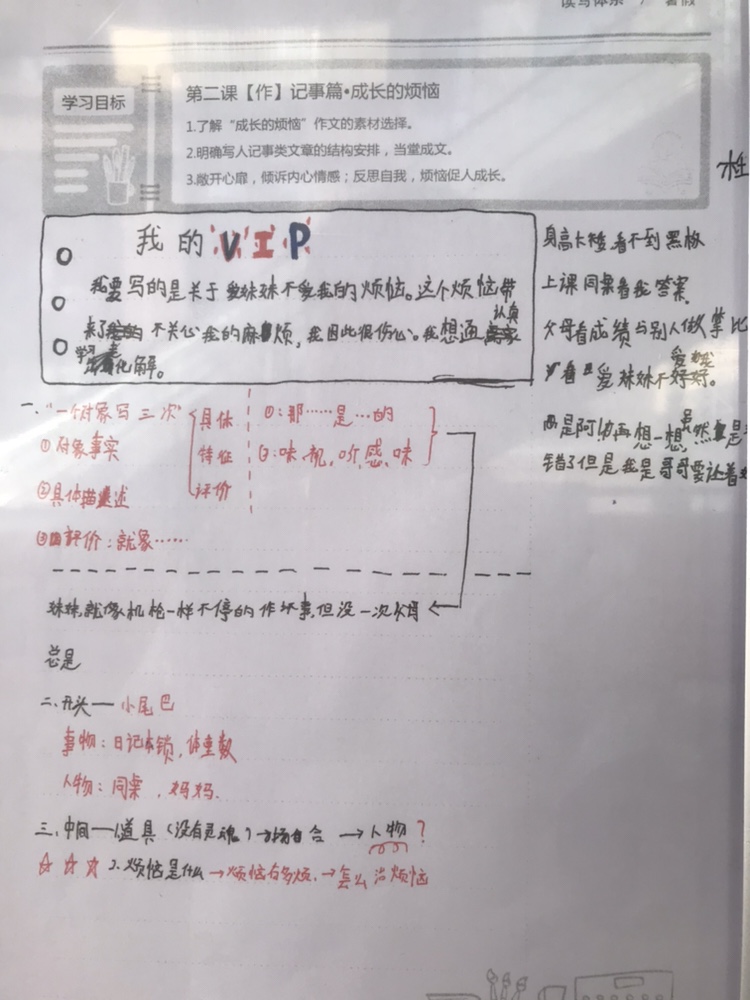 读写体系 / 暑假
学习目标
第二课【作】记事篇·成长的烦恼
1.了解“成长的烦恼”作文的素材选择。
2.明确写人记事类文章的结构安排，当堂成文。
3.敞开心扉，倾诉内心情感；反思自我，烦恼促人成长。
我的VIP
我要写的是关于妹妹不爱我的烦恼。这个烦恼带
来了不关心我的麻烦，我因此很伤心。我想通
认真
学习
化解。
身高太矮，看不到黑板
上课同桌看我答案
父母看成绩与别人做掌比
爱妹妹不好好。
再想一想虽然是
错了但是我是哥哥要让着
一、“一个对象写三次”
①对象事实
②具体描述
③评价：就象……
具体
特征
评价
①：那……是…的
②：味、视，听，感、味
妹妹就像机枪一样不停的作坏事，但没一次
总是
二、开头——小尾巴
事物：日记本锁，体重数
人物：同桌，妈妈
三、中间——1.道具（没有灵魂）→ 场合 → 人物？
☆ ☆ ☆ 2.烦恼是什么→烦恼有多烦→怎么治烦恼